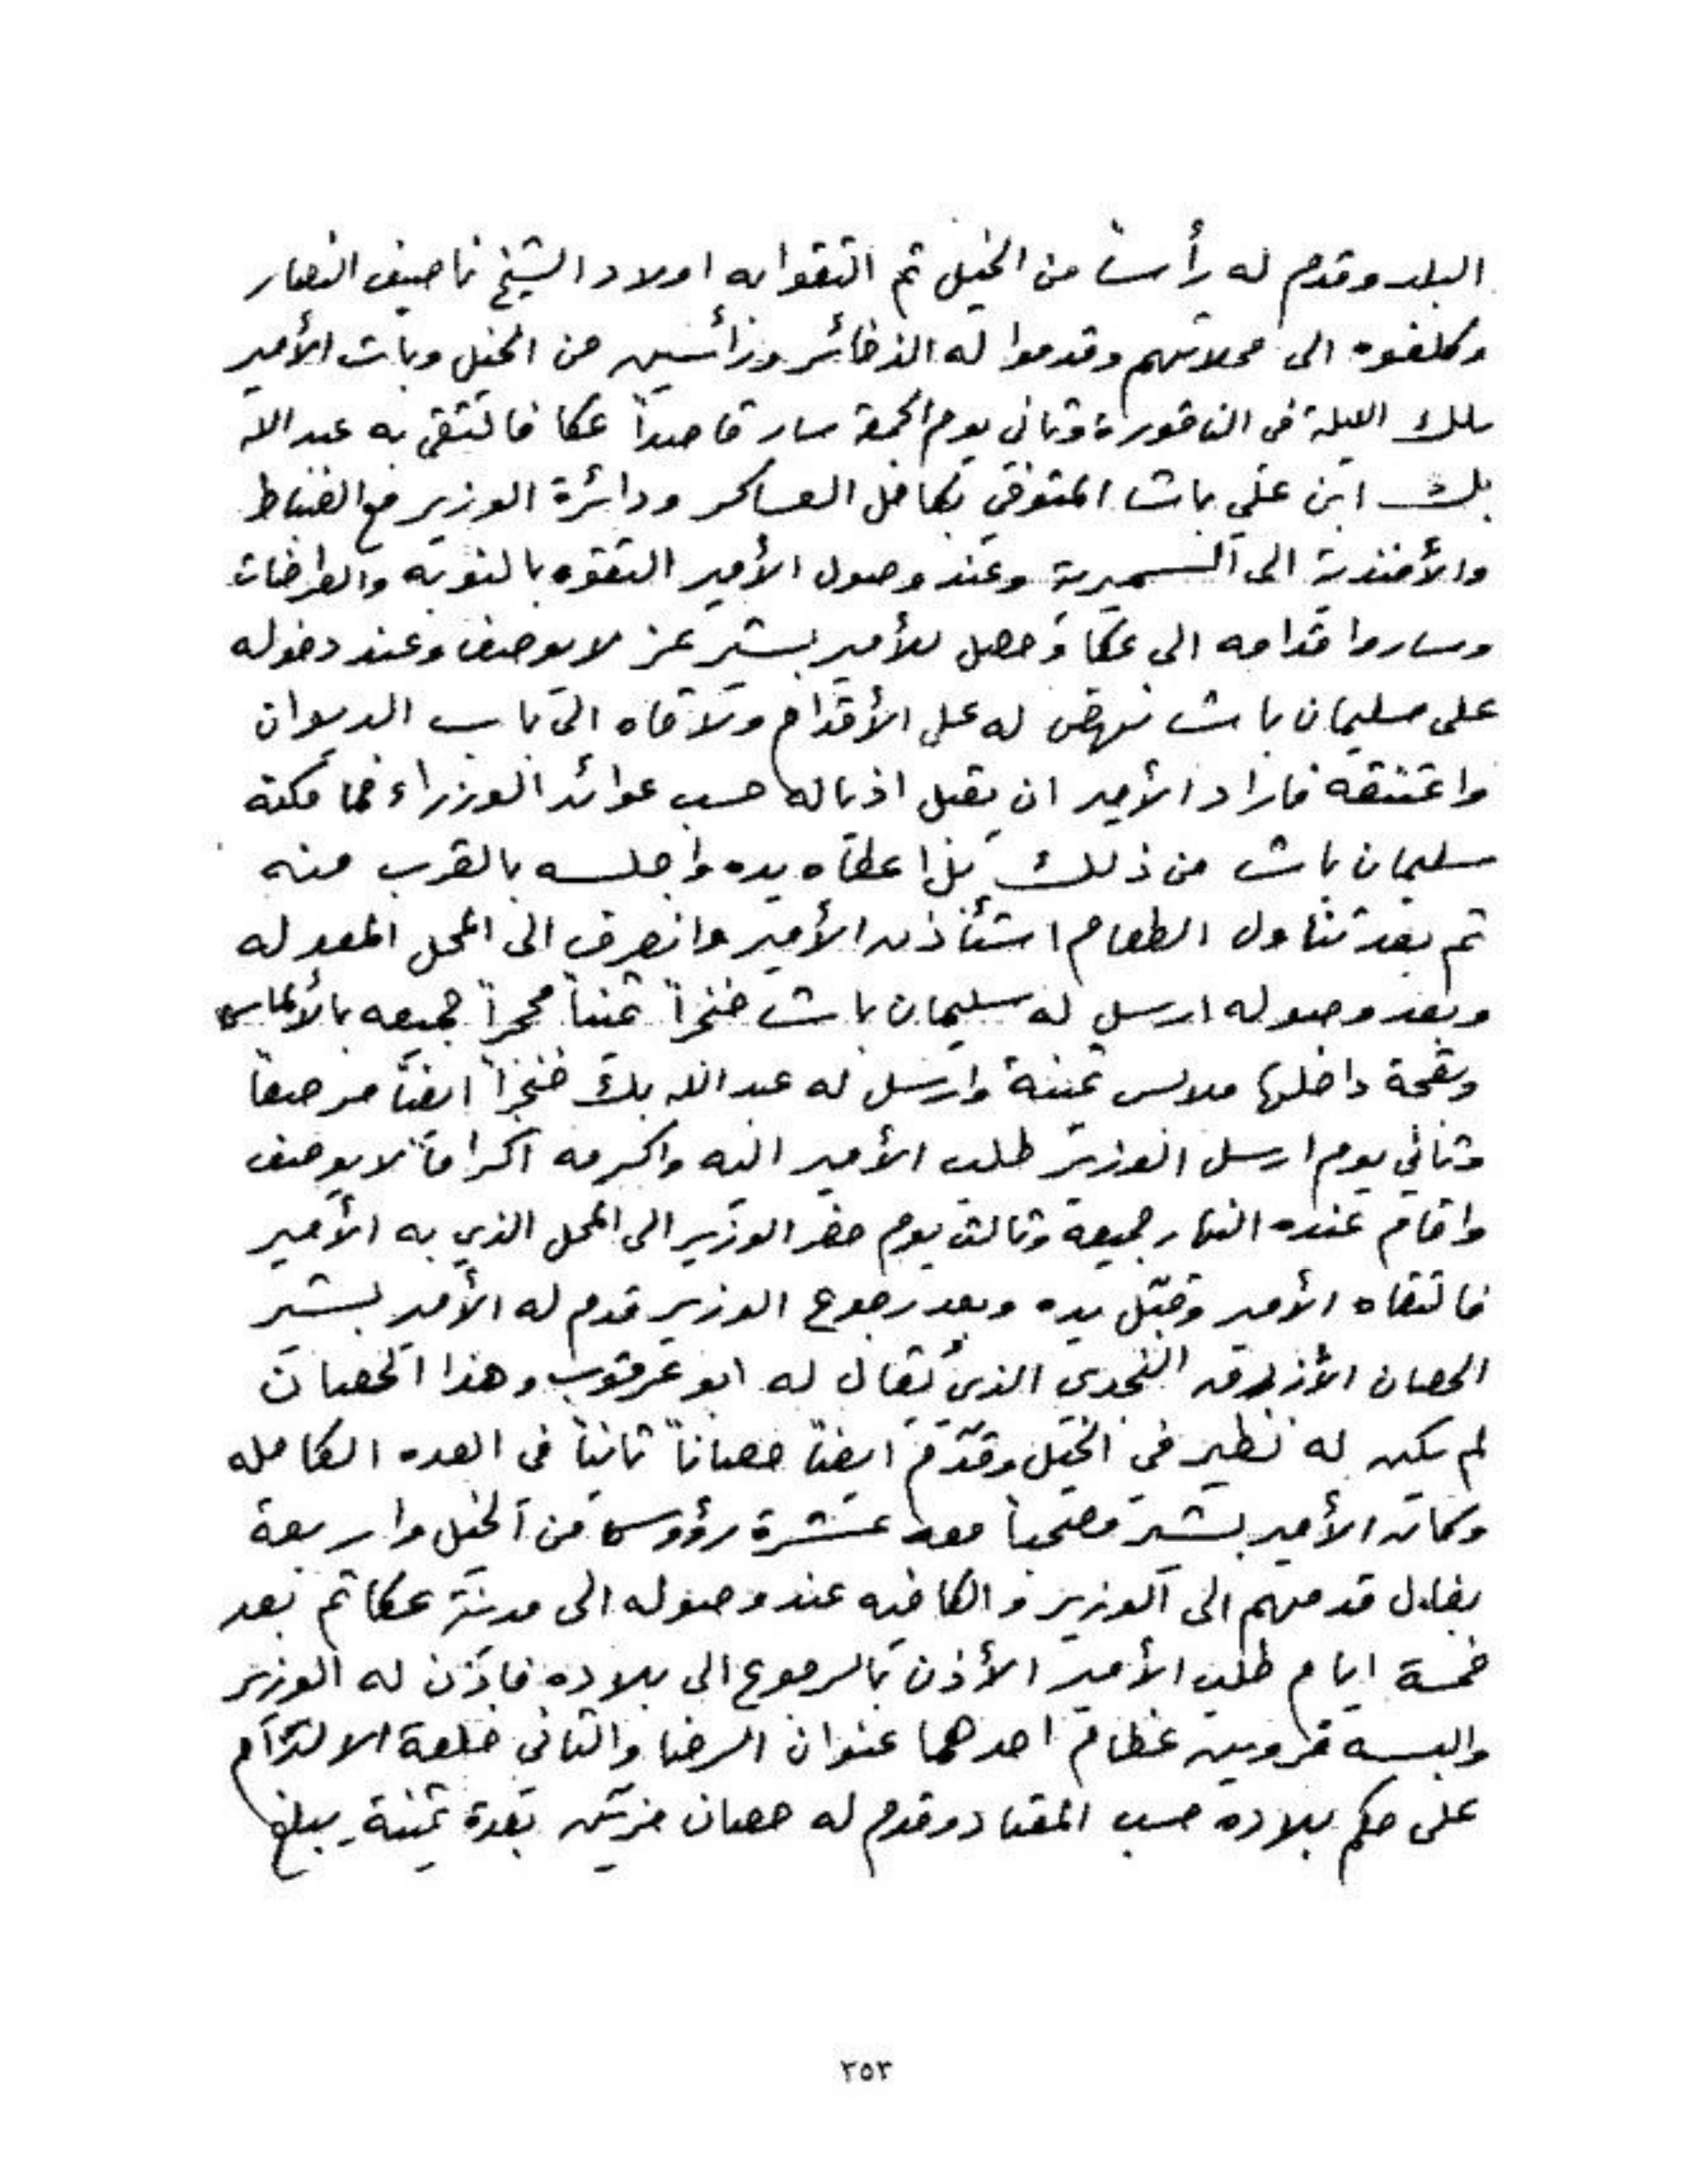 البلد وقدم له رأساً من الخيل ثم التقوا به اولاد الشيخ ناصيف النصار
وكلفوه الى محلاتهم وقدموا له الذخائر ورأسين من الخيل وبات الأمير
تلك الليلة في الناقورة وثاني يوم الجمعة سار قاصداً عكا فالتقى به عبدالله
بك ابن علي باشا المتوفي بكامل العساكر ودائرة الوزير مع الضباط
والأفندية الى السميرية وعند وصول الأمير التقوه بالنوبه والطرادات
وساروا قدامه الى عكا وحصل للأمير بشير عز لا يوصف وعند دخوله
على سليمان باشا نهض له على الأقدام وتلاقاه الى باب الديوان
واعتنقه فاراد الأمير ان يقبل اذياله حسب عوائد الوزراء فما مكنه
سليمان باشا من ذلك بل اعطاه يده واجلسه بالقرب منه
ثم بعد تناول الطعام استأذن الأمير وانصرف الى المحل المعد له
وبعد وصوله ارسل له سليمان باشا خنجراً ثميناً مجمراً جميعه بالألماس
وبقجة داخلها ملابس ثمينة وارسل له عبدالله بك خنجراً ايضاً مرصعاً
وثاني يوم ارسل الوزير طلب الأمير اليه واكرمه اكراماً لا يوصف
واقام عنده النهار جميعه وثالث يوم حضر الوزير الى المحل الذي به الأمير
فالتقاه الأمير وقبّل يده وبعد رجوع الوزير قدم له الأمير بشير
الحصان الأزرق النجدي الذي يقال له ابو عرقوب وهذا الحصان
لم يكن له نظير في الخيل وقدّم ايضاً حصاناً ثانياً في العده الكامله
وكان الأمير بشير مصحباً معه عشرة رؤوس من الخيل واربعة
بغال قدمهم الى الوزير والكافيه عند وصوله الى مدينة عكا ثم بعد
خمسة ايام طلب الأمير الأذن بالرجوع الى بلاده فاذن له الوزير
والبسه فروين عظام احدهما عنوان الرضا والثاني خلعة الالتزام
على حكم بلاده حسب المعتاد وقدم له حصان مزين بعدة ثمينة يبلغ
٢٥٣